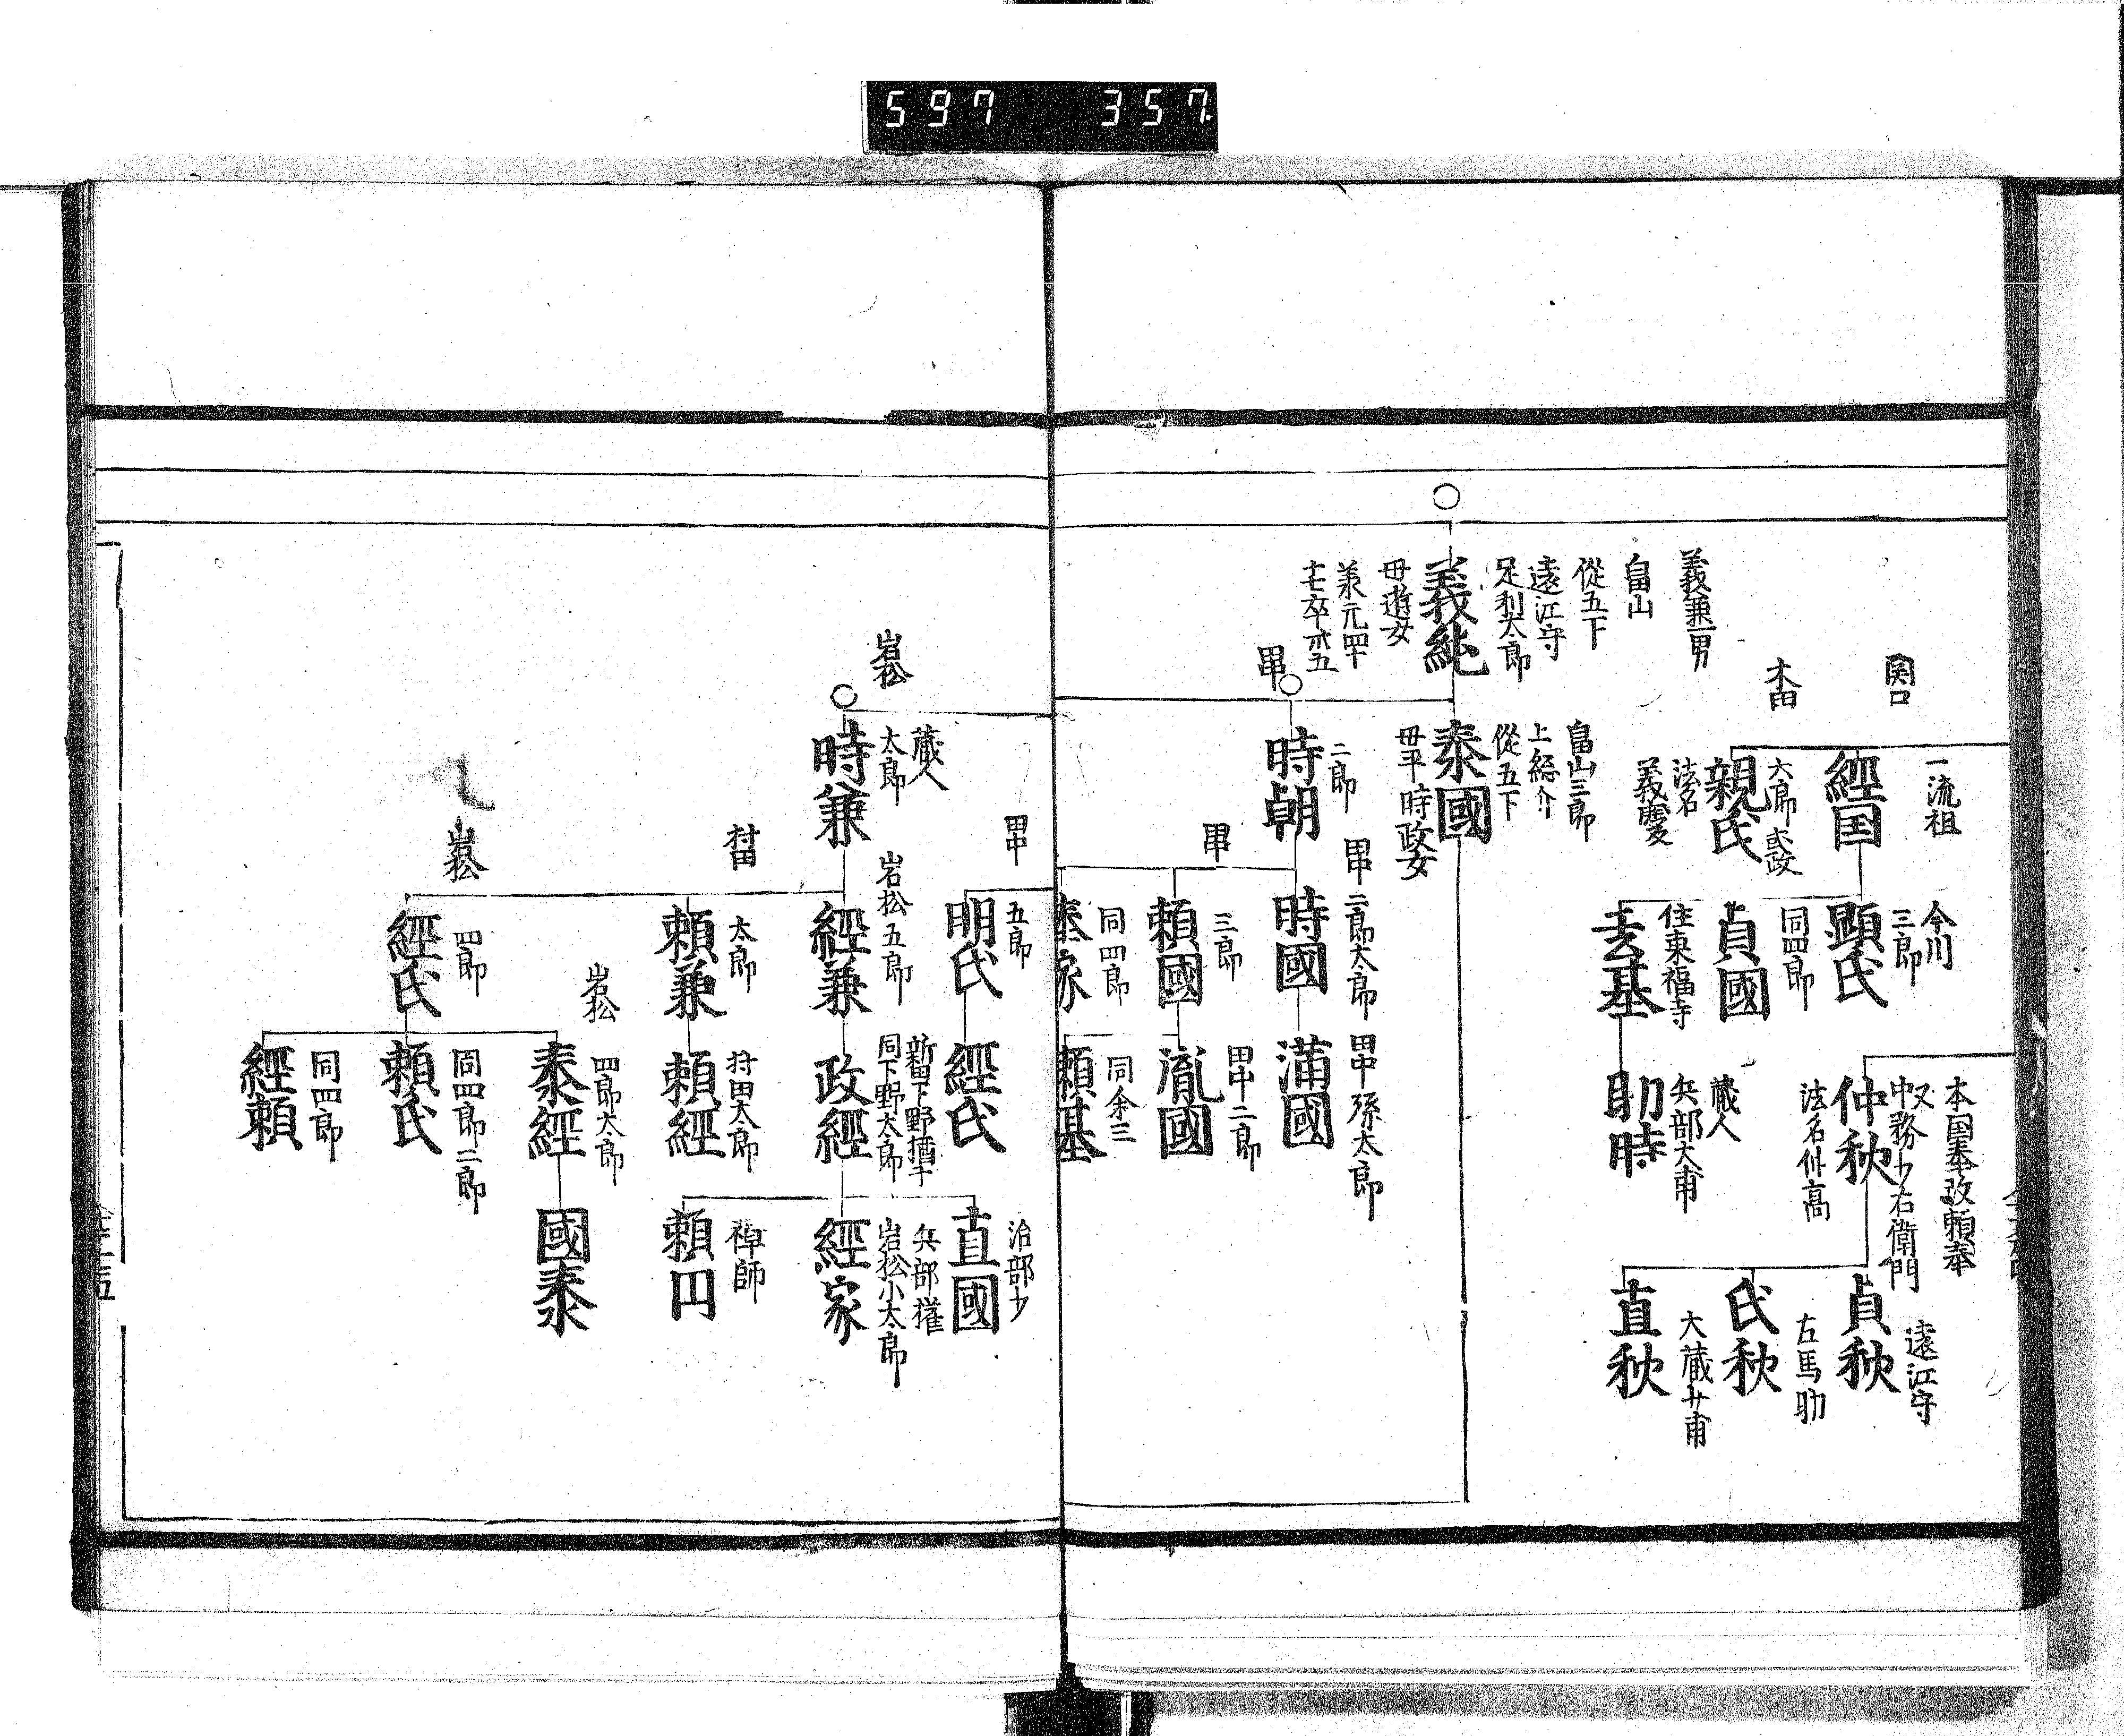 597 357
関口
一流祖
經国
木田
太郎 式政
親氏
法名
義慶
今川
三郎
顕氏
同四郎
貞國
住東福寺
玄基
蔵人
兵部大甫
助時
本国奉改頼奉
又
中務少右衛門
仲秋
法名仲高
遠江守
貞秋
右馬助
氏秋
大蔵少甫
直秋
義兼一男
畠山
從五下
遠江守
足利太郎
義純
母遊女
義元四年
十七卒
畠山三郎
上総介
從五下
泰國
母平時政女
田中
二郎
時朝
田中二郎太郎
時國
田中孫太郎
満國
田中
三郎
頼國
田中二郎
胤國
同四郎
泰家
同余三
頼基
田中
五郎
明氏
經氏
岩松
蔵人
太郎
時兼
岩松五郎
經兼
新田下野
同下野太郎
政經
治部少
直國
兵部
岩松小太郎
經家
禅師
頼円
村田
太郎
頼兼
村田太郎
頼經
岩松
四郎
經氏
岩松
四郎太郎
泰經
國泰
同四郎二郎
頼氏
同四郎
經頼